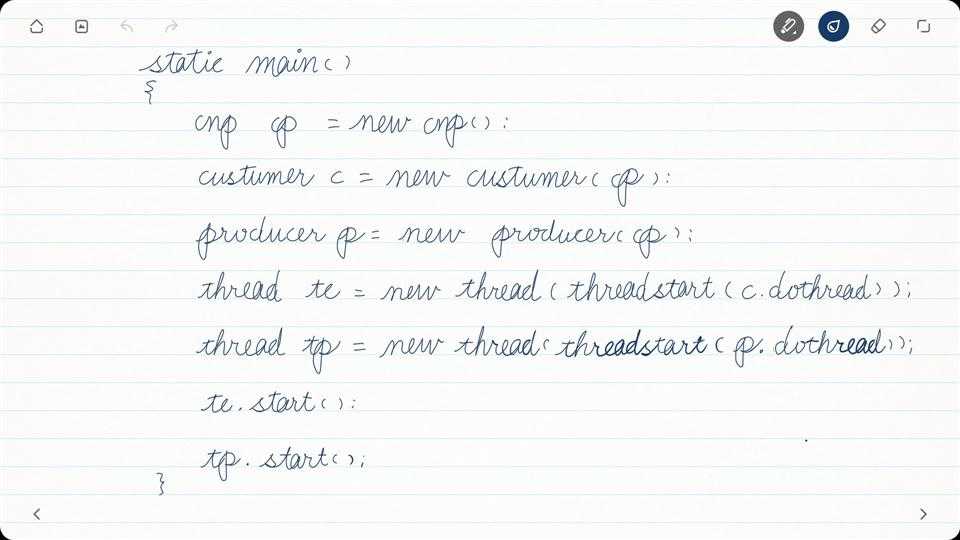 static main()
{
cnp cp = new cnp():
custumer c = new custumer(cp):
producer p = new producer(cp);
thread te = new thread(threadstart(c.dothread));
thread tp = new thread(threadstart(p.dothread));
te.start():
tp.start();
}